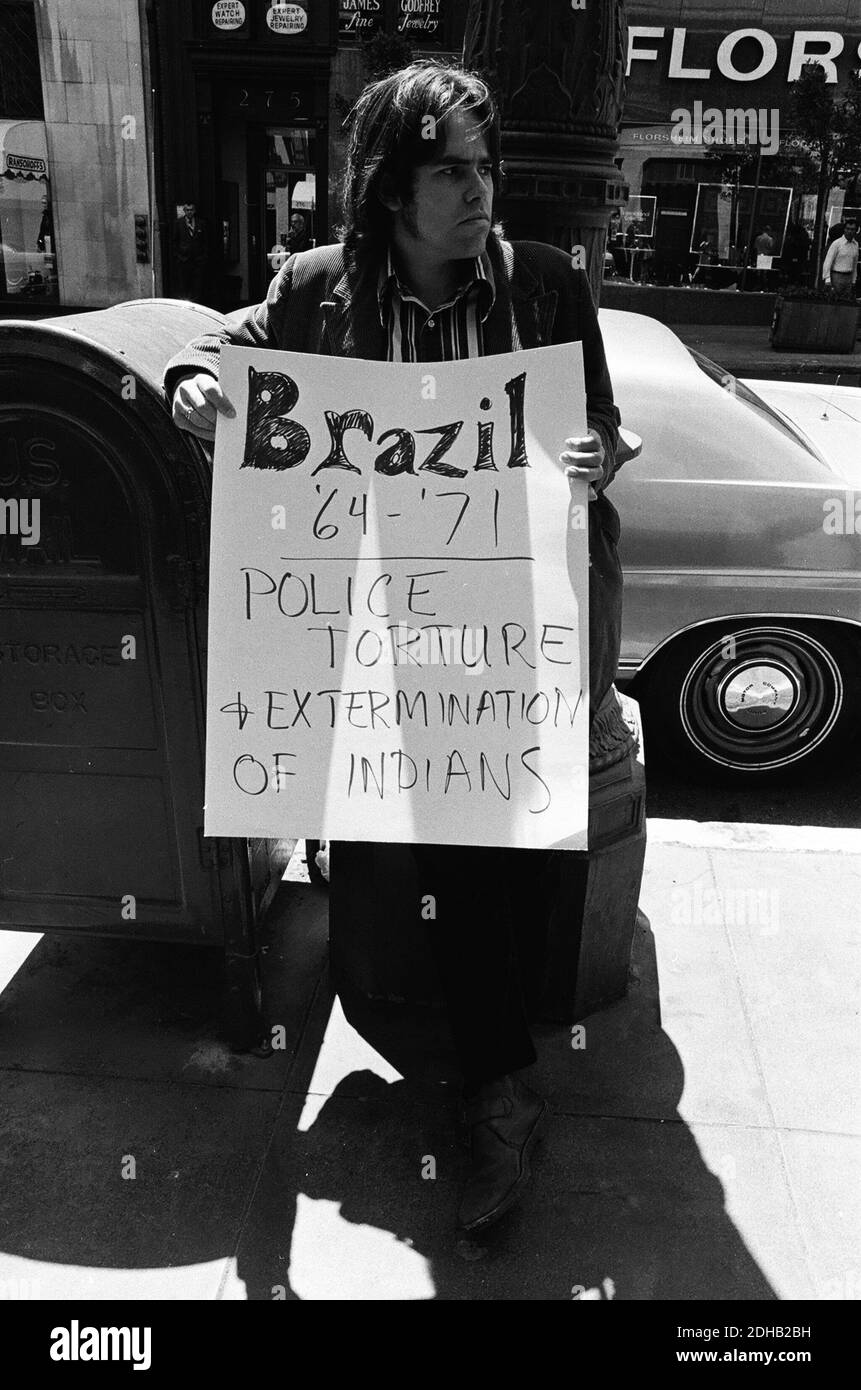 EXPERT
WATCH
REPAIRING
EXPERT
JEWELRY
REPAIRING
JAMES
fine
GODFREY
Jewelry
FLORS
275
FLORSHEIM
RANSOHOFFS
Brazil
'64-'71
POLICE
TORTURE
& EXTERMINATION
OF INDIANS
U.S.
MAIL
STORAGE
BOX
alamy
Image ID: 2DHB2BH
www.alamy.com